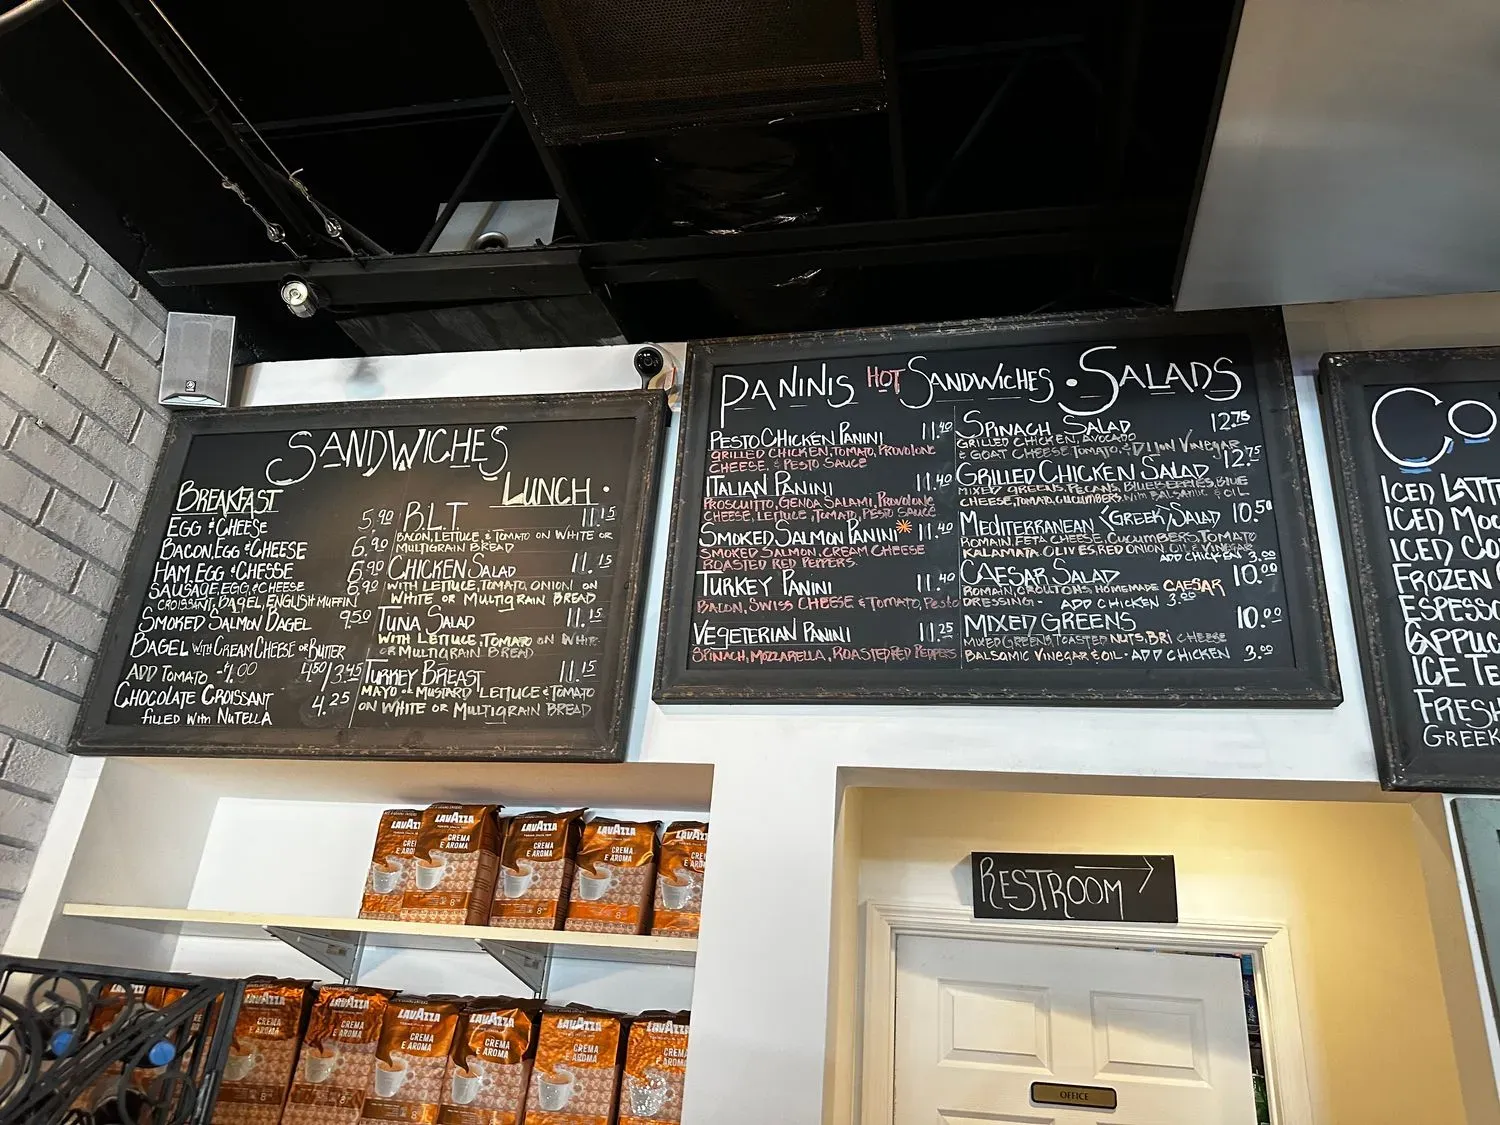 SANDWICHES
BREAKFAST
EGG & CHEESE 5.90
BACON, EGG & CHEESE 6.90
HAM, EGG & CHESSE 6.90
SAUSAGE, EGG, & CHEESE 6.90
CROISSANT, BAGEL, ENGLISH MUFFIN
SMOKED SALMON BAGEL 9.50
BAGEL WITH CREAM CHEESE OR BUTTER
4.50/3.45
ADD TOMATO - 1.00
CHOCOLATE CROISSANT 4.25
FILLED WITH NUTELLA
LUNCH.
B.L.T. 11.15
BACON, LETTUCE & TOMATO ON WHITE OR
MULTIGRAIN BREAD
CHICKEN SALAD 11.15
WITH LETTUCE, TOMATO, ONION ON
WHITE OR MULTIGRAIN BREAD
TUNA SALAD 11.15
WITH LETTUCE, TOMATO ON WHITE
OR MULTIGRAIN BREAD
TURKEY BREAST 11.15
MAYO OR MUSTARD LETTUCE & TOMATO
ON WHITE OR MULTIGRAIN BREAD
PANINIS HOT SANDWICHES . SALADS
PESTO CHICKEN PANINI 11.40
GRILLED CHICKEN, TOMATO, PROVOLONE
CHEESE, & PESTO SAUCE
ITALIAN PANINI 11.40
PROSCUITTO, GENOA SALAMI, PROVOLONE
CHEESE, LETTUCE, TOMATO, PESTO SAUCE
SMOKED SALMON PANINI 11.40
SMOKED SALMON, CREAM CHEESE
ROASTED RED PEPPERS.
TURKEY PANINI 11.40
BACON, SWISS CHEESE & TOMATO, Pesto
VEGETERIAN PANINI 11.25
SPINACH, MOZZARELLA, ROASTED RED PEPPERS
SPINACH SALAD 12.75
GRILLED CHICKEN, AVOCADO
& GOAT CHEESE TOMATO, & DIJON VINEGAR
GRILLED CHICKEN SALAD 12.75
MIXED GREENS, PECANS, BLUEBERRIES, BLUE
CHEESE, TOMATO, CUCUMBERS with BALSAMIC & OIL
MEDITERRANEAN (GREEK) SALAD 10.50
ROMAIN, FETA CHEESE, CUCUMBERS, TOMATO
KALAMATA OLIVES, RED ONION, OIL & VINEGAR
ADD CHICKEN 3.00
CAESAR SALAD 10.00
ROMAIN, CROUTONS, HOMEMADE CAESAR
DRESSING - ADD CHICKEN 3.00
MIXED GREENS 10.00
MIXED GREENS, TOASTED NUTS, BRI CHEESE
BALSAMIC VINEGAR & OIL - ADD CHICKEN 3.00
CO
ICED LATT
ICED MOC
ICED CO
FROZEN
ESPESSO
CAPPUC
ICE TE
FRESH
GREEK
LAVAZZA
CREMA
E AROMA
LAVAZZA
CREMA
E AROMA
LAVAZZA
CREMA
E AROMA
LAVAZZA
CREMA
E AROMA
LAVAZZA
CREMA
E AROMA
RESTROOM
LAVAZZA
CREMA
E AROMA
LAVAZZA
CREMA
E AROMA
LAVAZZA
CREMA
E AROMA
LAVAZZA
CREMA
E AROMA
LAVAZZA
CREMA
E AROMA
LAVAZZA
CREMA
E AROMA
OFFICE